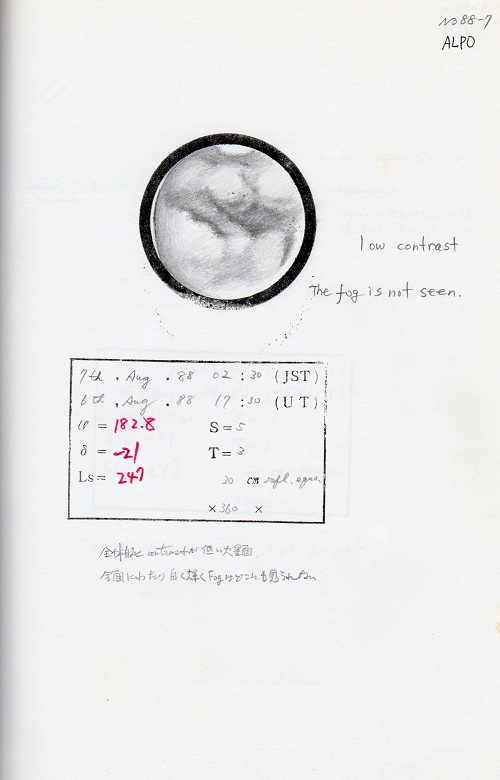 No 88-7
ALPO
low contrast
The fog is not seen.
7th . Aug . 88 02 : 30 (JST)
6th . Aug . 88 17 : 30 (UT)
ω = 182.8 S = 5
δ = -21 T = 3
Ls = 247 30 cm refl. equa.
×360 ×
全体的に contrastが低い火面.
全面にわたり白く輝くFogはどこにも見られない